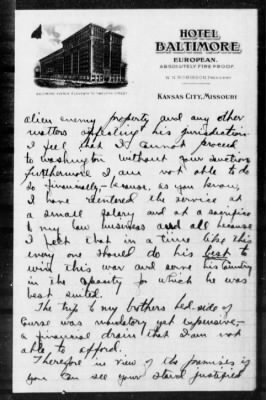 HOTEL
BALTIMORE
EUROPEAN.
ABSOLUTELY FIRE PROOF.
KANSAS CITY, MISSOURI
alien enemy property and any other
matters affecting his jurisdiction
I feel that I cannot proceed
to Washington without your sanction
furthermore I am not able to do
so financially,- because, as you know,
I have reentered the service at
a small salary and at a sacrifice
to my law business and all because
I felt that in a time like this
every one should do his best to
win this war and serve his Country
in the capacity for which he was
best suited.
The trip to my brothers bed-side of
course was mandatory yet expensive,-
a financial drain that I am not
able to afford.
Therefore in view of the premises if
you can see your justified